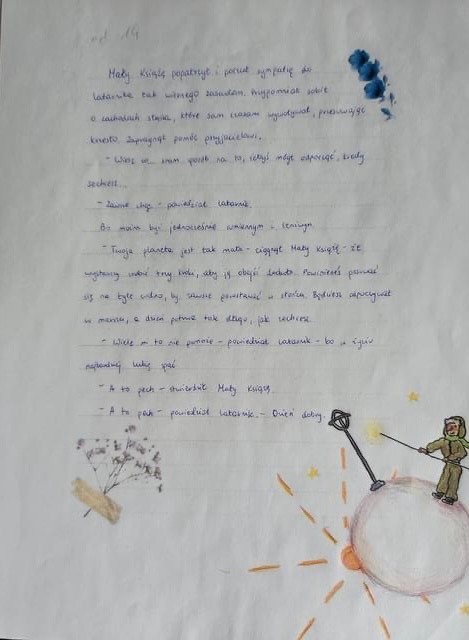 Mały Książę popatrzył i poczuł sympatię do
latarnika tak wiernego zasadom. Przypomniał sobie
o zachodach słońca, które sam czasem wywoływał, przesuwając
krzesło. Zapragnął pomóc przyjacielowi.
- Wiesz co... znam sposób na to, żebyś mógł odpocząć, kiedy
zechcesz...
- Zawsze chcę - powiedział latarnik.
Bo można być jednocześnie wiernym i leniwym.
- Twoja planeta jest tak mała - ciągnął Mały Książę - że
wystarczy zrobić trzy kroki, aby ją obejść dookoła. Powinieneś
się na tyle wolno, by zawsze pozostawać w słońcu. Będziesz odpoczywał
w marszu, a dzień potrwa tak długo, jak zechcesz.
- Wiele mi to nie pomoże - powiedział latarnik - bo w życiu
najbardziej lubię spać.
- A to pech - stwierdził Mały Książę.
- A to pech - powiedział latarnik. - Dzień dobry.